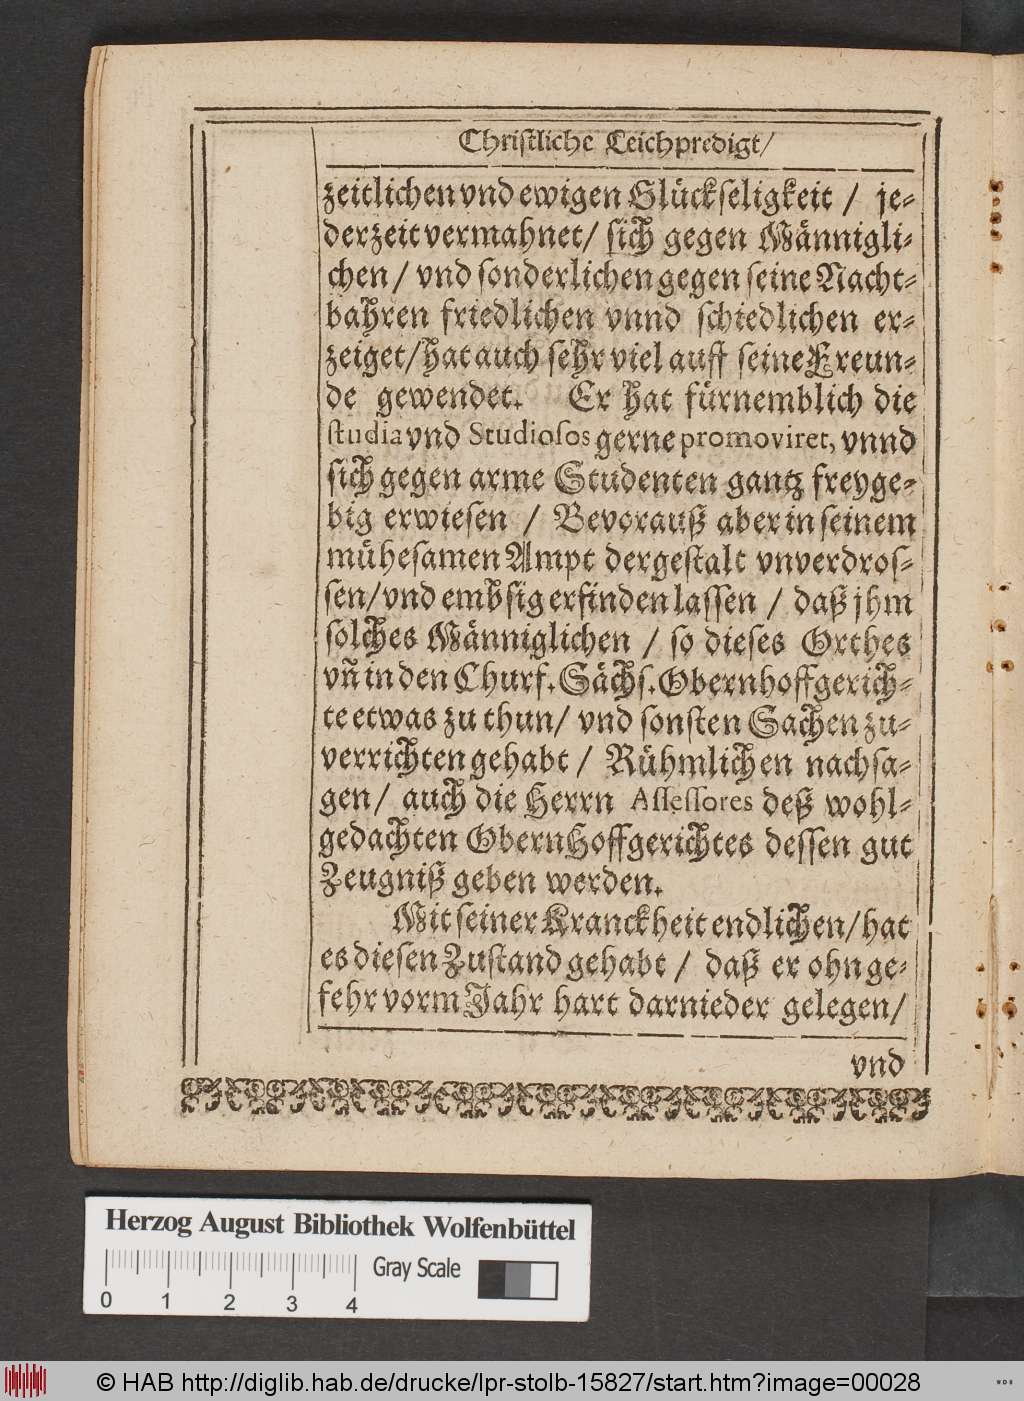 Christliche Leichpredigt/
zeitlichen vnd ewigen Glückseligkeit / je-
derzeit vermahnet/ sich gegen Männigli-
chen / vnd sonderlichen gegen seine Nacht-
bahren friedlichen vnnd schiedlichen er-
zeiget/hat auch sehr viel auff seine Freun-
de gewendet. Er hat fürnemblich die
studia vnd Studiosos gerne promoviret, vnnd
sich gegen arme Studenten gantz freyge-
big erwiesen / Bevorauß aber in seinem
mühesamen Ampt dergestalt vnverdros-
sen/vnd embsig erfinden lassen / daß jhm
solches Männiglichen / so dieses Orthes
vñ in den Churf. Sächs. Obernhoffgerich-
te etwas zu thun/ vnd sonsten Sachen zu-
verrichten gehabt / Rühmlichen nachsa-
gen/ auch die Herrn Assessores deß wohl-
gedachten ObernHoffgerichtes dessen gut
Zeugniß geben werden.
Mit seiner Kranckheit endlichen/hat
es diesen Zustand gehabt / daß er ohnge-
fehr vorm Jahr hart darnieder gelegen/
vnd
Herzog August Bibliothek Wolfenbüttel
Gray Scale
0 1 2 3 4
© HAB http://diglib.hab.de/drucke/lpr-stolb-15827/start.htm?image=00028